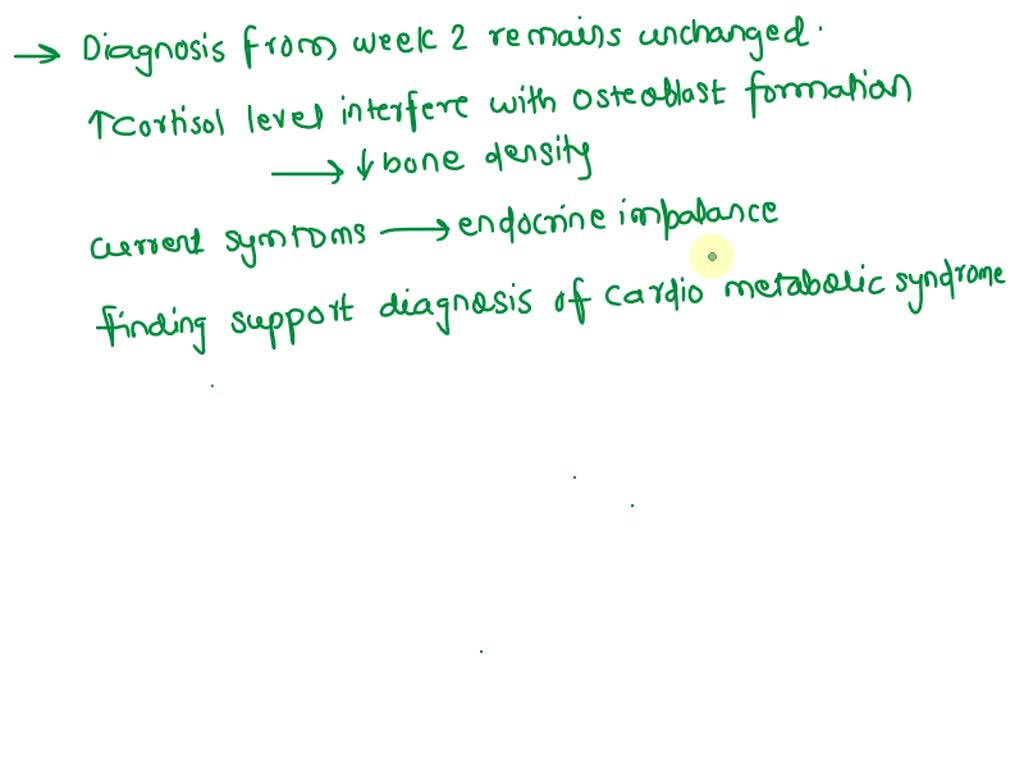 → Diagnosis from week 2 remains unchanged.
↑Cortisol level interfere with osteoblast formation
→ ↓ bone density
current symtoms → endocrine imbalance
finding support diagnosis of cardio metabolic syndrome